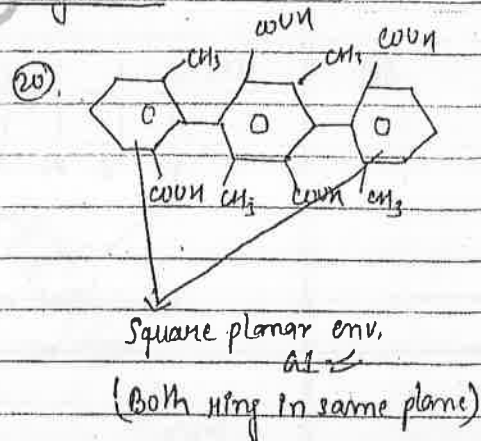 COOH
COOH
(20).
CH3
CH3
O
O
O
COOH
CH3
COOH
CH3
Square planar env.
(Both ring in same plane)